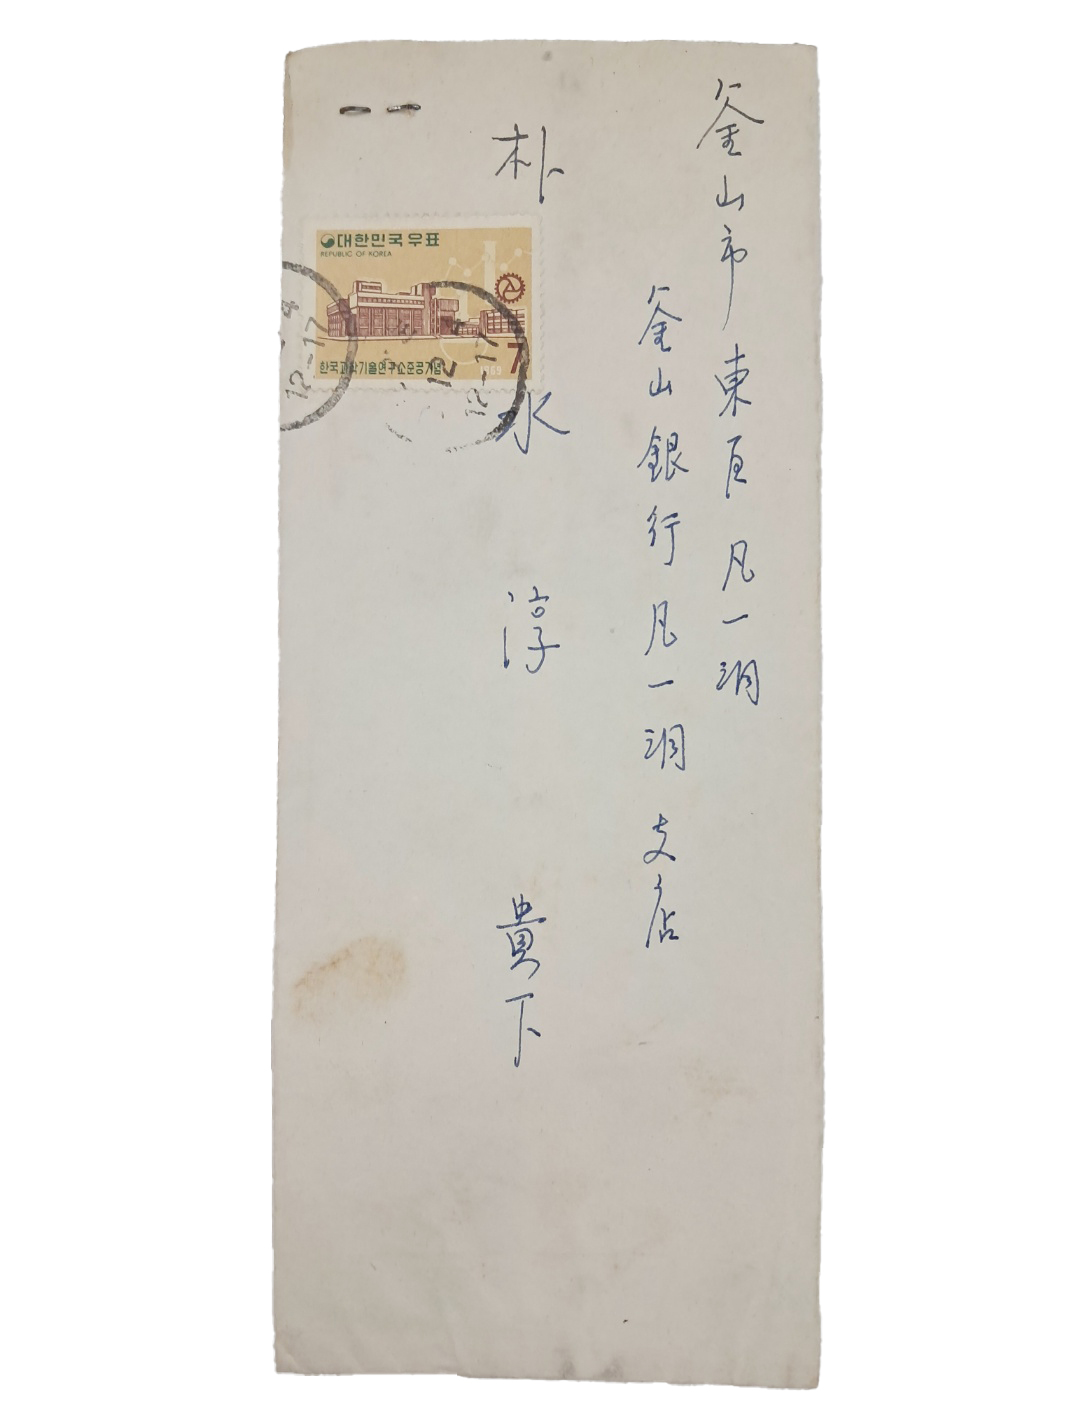 釜山市 東区 凡一洞
釜山銀行 凡一洞 支店
朴 水 淳 貴下
대한민국우표
REPUBLIC OF KOREA
한국과학기술연구소준공기념
1969
7
12-17
12-17